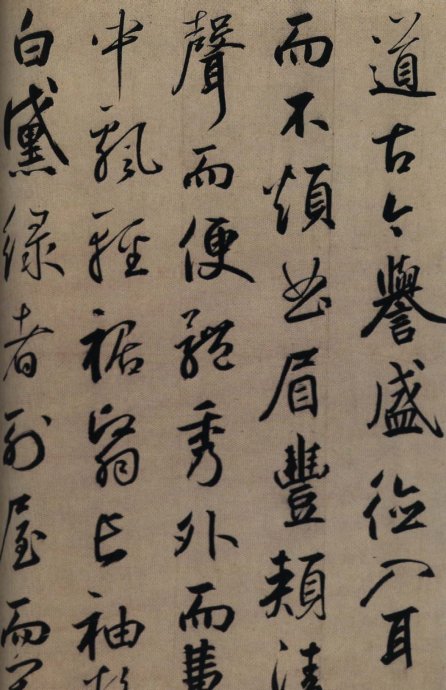 道古今譽盛德入耳
而不煩曲眉豐頰清
聲而便體秀外而惠
中飄輕裾翳長袖粉
白黛綠者列屋而